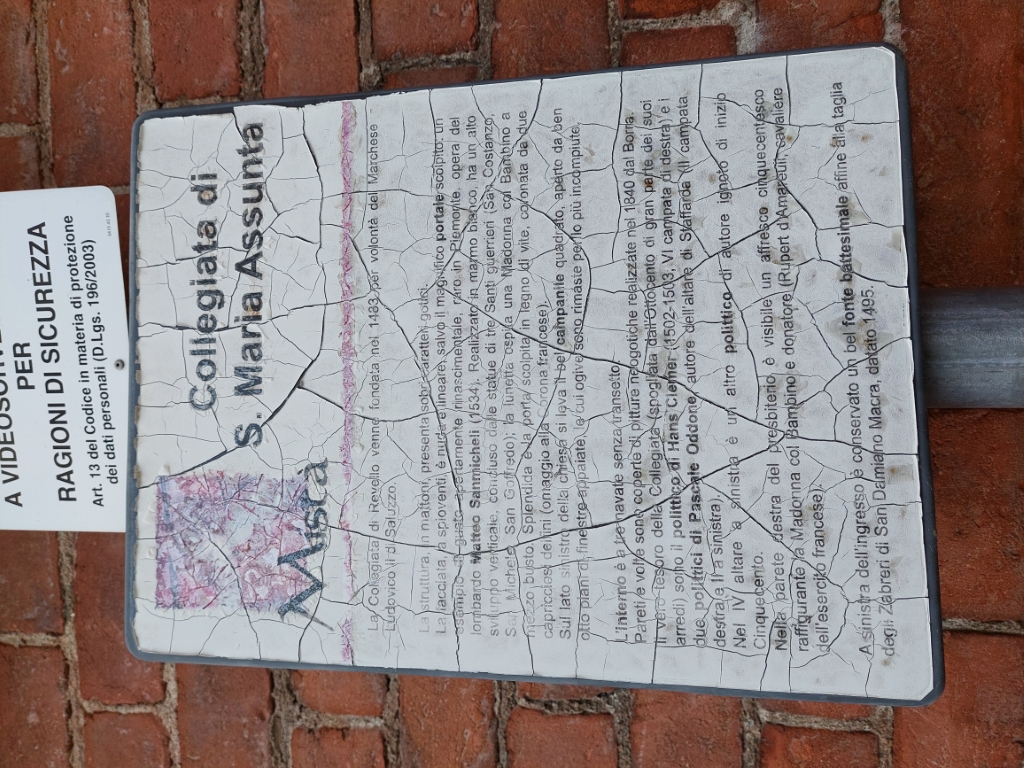 A VIDEOSORVE
PER
RAGIONI DI SICUREZZA
Art. 13 del Codice in materia di protezione
dei dati personali (D.Lgs. 196/2003)
Mistà
Collegiata di
S. Maria Assunta
La Collegiata di Revello venne fondata nel 1483 per volontà del Marchese
Ludovico II di Saluzzo.
La struttura, in mattoni, presenta sobri caratteri gotici.
La facciata, a spioventi, è nuda e lineare, salvo il magnifico portale scolpito, un
esempio di gusto apertamente rinascimentale, raro in Piemonte, opera del
lombardo Matteo Sanmicheli (1534). Realizzato in marmo bianco, ha un alto
sviluppo verticale, concluso dalle statue di tre Santi guerrieri (San Costanzo,
San Michele, San Goffredo); la lunetta ospita una Madonna col Bambino a
mezzo busto. Splendida è la porta scolpita in legno di vite, coronata da due
capricciosi delfini (omaggio alla Corona francese).
Sul lato sinistro della chiesa si leva il bel campanile quadrato, aperto da ben
otto piani di finestre appaiate, le cui ogive sono rimaste per lo più incompiute.
L'interno è a tre navate senza transetto.
Pareti e volte sono coperte di pitture neogotiche realizzate nel 1840 dal Borra.
Il vero tesoro della Collegiata (spogliata dall'Ottocento di gran parte dei suoi
arredi) sono il polittico di Hans Clemer (1502-1503, VI campata di destra) e i
due polittici di Pascale Oddone, autore dell'altare di Staffarda (II campata
destra e II a sinistra).
Nel IV altare a sinistra è un altro polittico di autore ignoto di inizio
Cinquecento.
Nella parete destra del presbiterio è visibile un affresco cinquecentesco
raffigurante la Madonna col Bambino e donatore (Rupert d'Amareuil, cavaliere
dell'esercito francese).
A sinistra dell'ingresso è conservato un bel fonte battesimale affine alla taglia
degli Zabreri di San Damiano Macra, datato 1495.